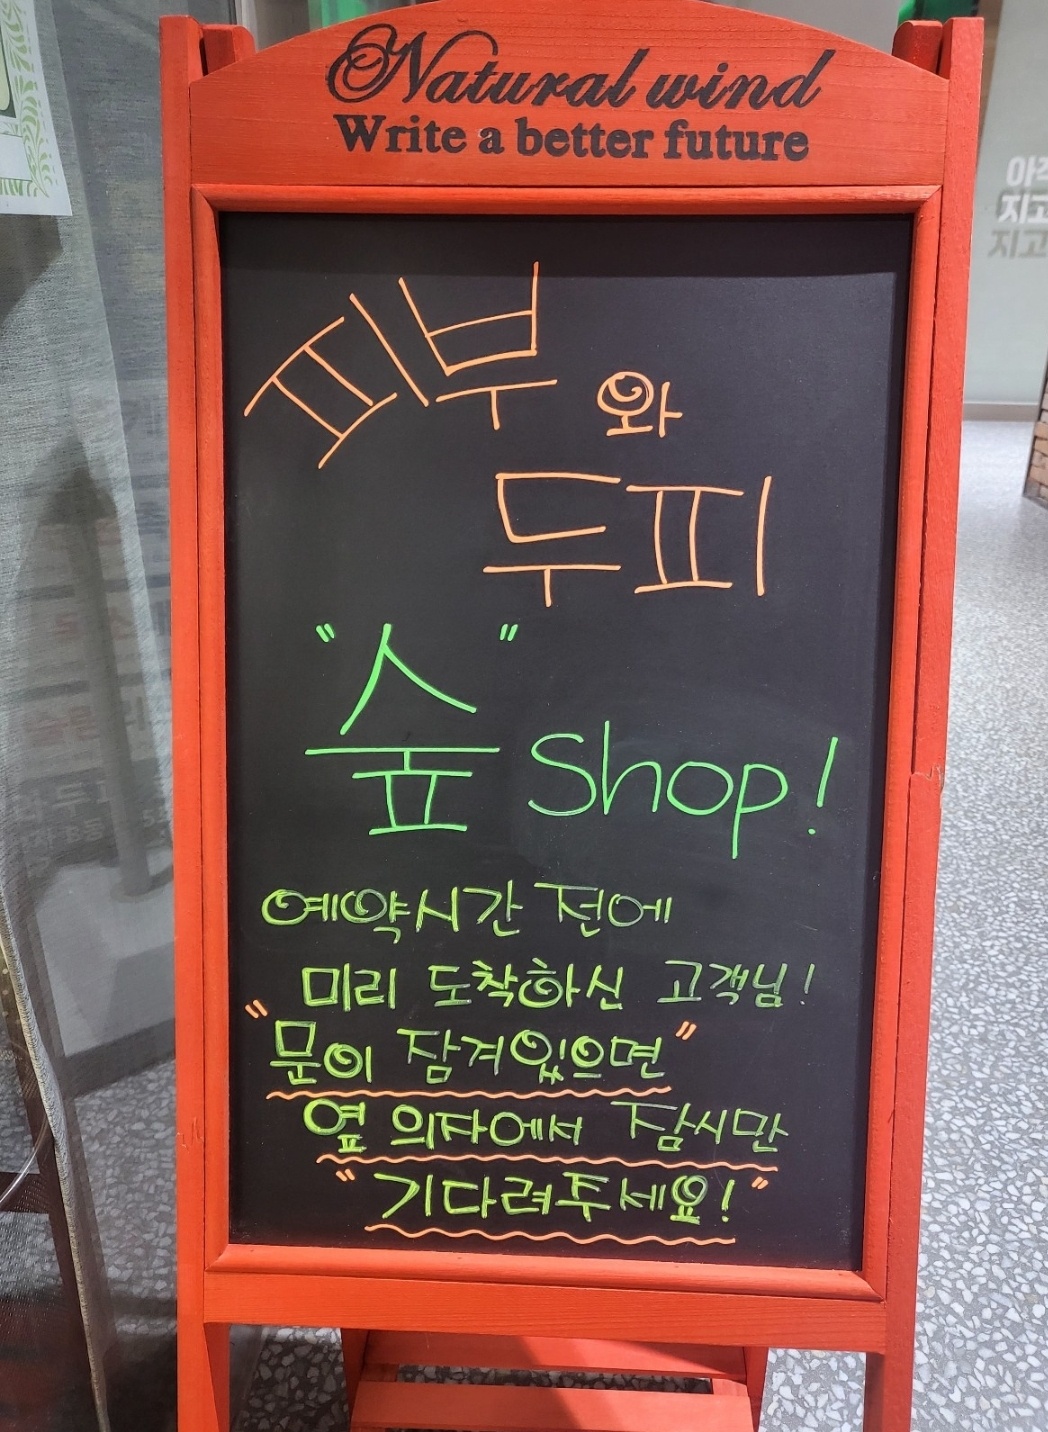 Natural wind
Write a better future
피부와
두피
"숲" Shop!
예약시간 전에
미리 도착하신 고객님!
"문이 잠겨있으면"
옆 의자에서 잠시만
"기다려주세요!"
지고
지고